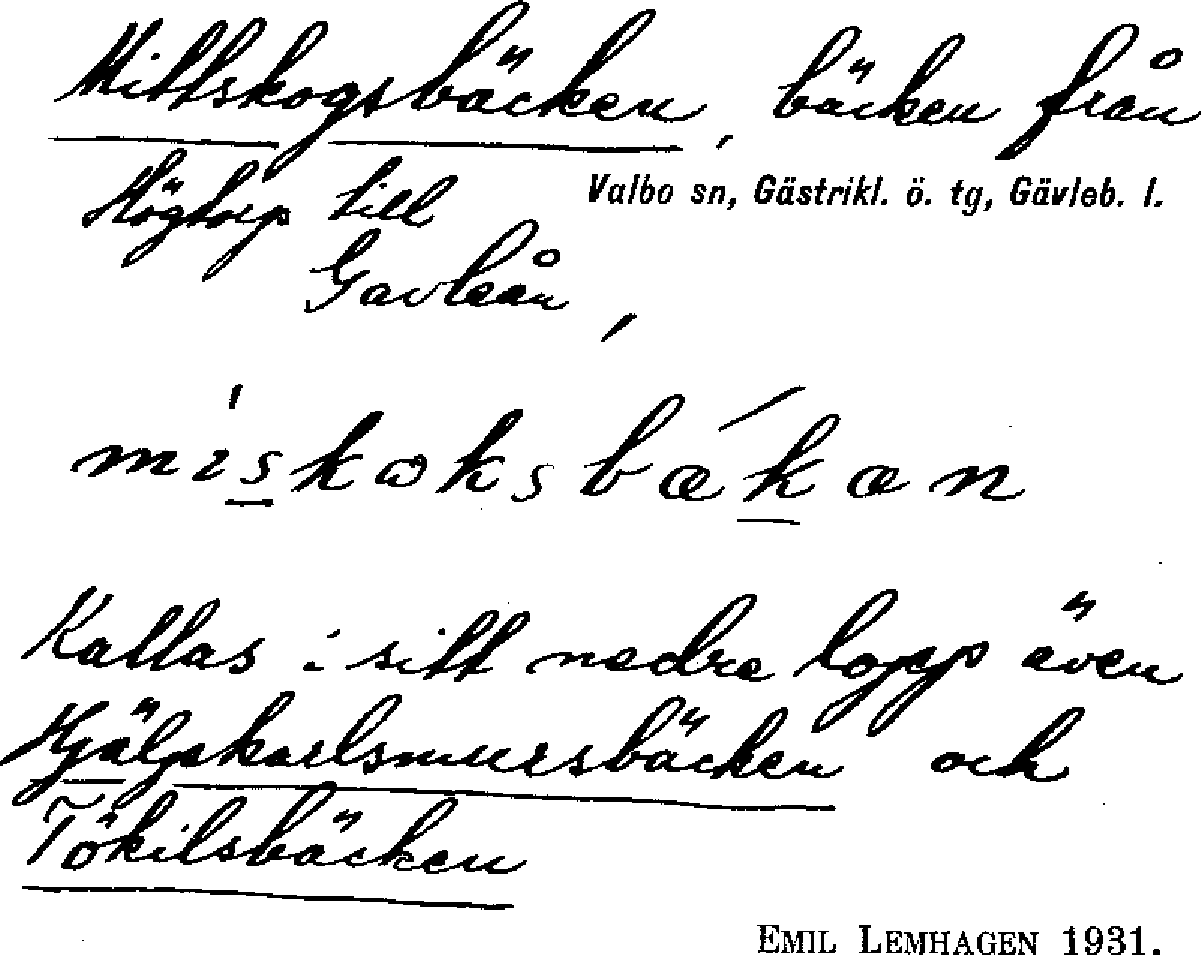 Mittskogsbäcken, bäcken från
Högtorp till
Valbo sn, Gästrikl. ö. tg, Gävleb. l.
Gavleån,
miskɷksbækæn
Kallas i sitt nedre lopp även
Hjälpkarlsmursbäcken och
Tökilsbäcken
EMIL LEMHAGEN 1931.